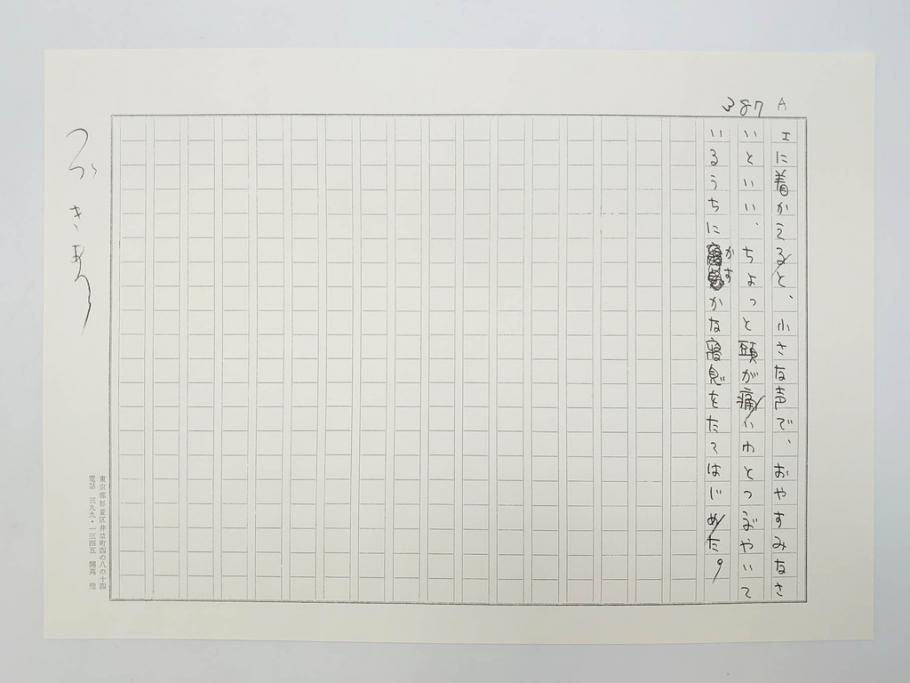 387 A
ェに着かえると、小さな声で、おやすみなさ
いといい、ちょっと頭が痛いわとつぶやいて
いるうちにかすかな寝息をたてはじめた。
つづきあり
東京都杉並区井草町四の八の十四
電話 三九九・一三四五 開高 健